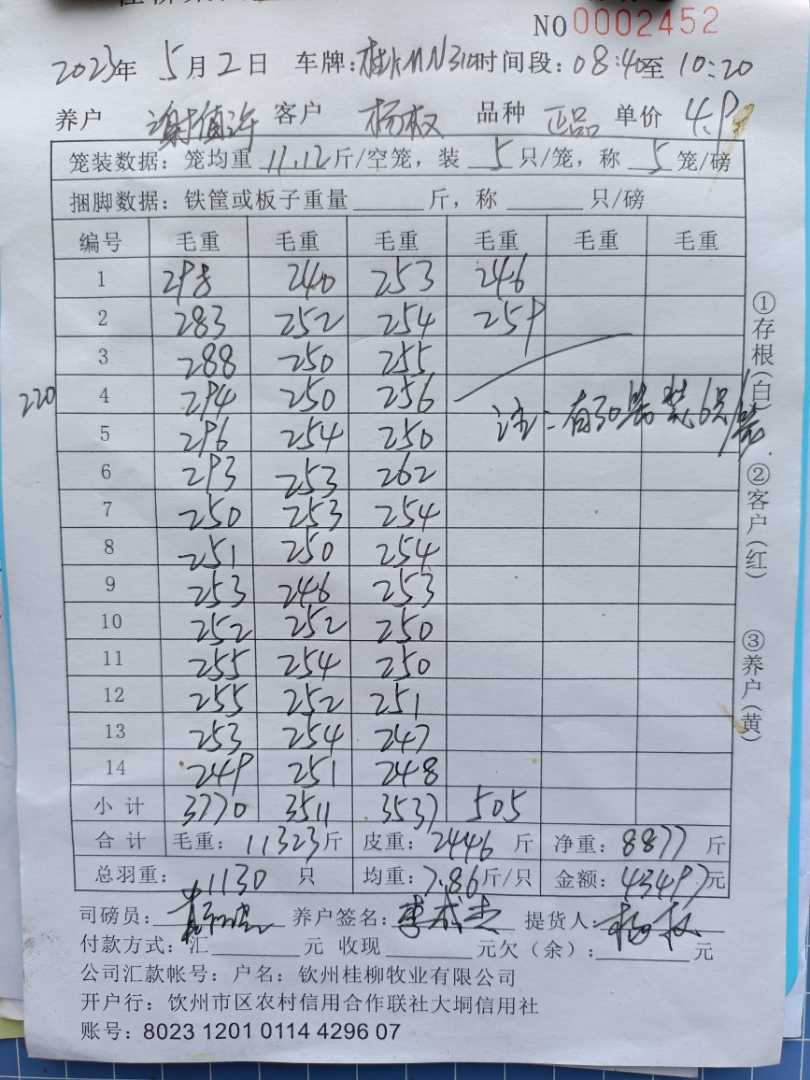 NO 0002452
2023年 5月2日 车牌: 时间段:08:40至10:20
养户 客户 杨权 品种 正品 单价 4.9
笼装数据:笼均重 11.12斤/空笼,装 5只/笼,称 5笼/磅
捆脚数据:铁筐或板子重量______斤,称______只/磅
编号 毛重 毛重 毛重 毛重 毛重 毛重
1 298 240 253 246
2 283 252 254 259
3 288 250 255
220
4 294 250 256
注:有30笼装6只/笼
5 296 254 250
6 293 253 262
7 250 253 254
8 251 250 254
9 253 246 253
10 252 252 250
11 255 254 250
12 255 252 251
13 253 254 247
14 249 251 248
小计 3770 3511 3537 505
合计 毛重:11323斤 皮重:2446斤 净重:8877斤
总羽重:1130只 均重:7.86斤/只 金额:43497元
司磅员: 养户签名: 提货人:杨权
付款方式:汇______元 收现______元欠(余):______元
公司汇款帐号:户名:钦州桂柳牧业有限公司
开户行:饮州市区农村信用合作联社大垌信用社
账号:8023 1201 0114 4296 07
①存根(白)
②客户(红)
③养户(黄)